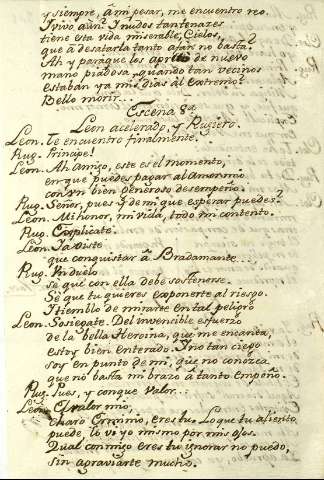 y siempre, a mi pesar, me encuentro reo.
Y vivo aun? Y nudos tan tenazes
tiene esta vida miserable, Cielos,
que â desatarla tanto afan no basta?
Ah y paraque los apreto de nuevo
mano piadosa, quando tan vecinos
estaban ya mis dias al extremo?
Bello morir...
Escena 8ª
Leon acelerado, y Rugiero.
Leon. Te encuentro finalmente.
Rug. Principe!
Leon. Ah Amigo, este es el momento,
en que puedes pagar al Amor mio
con un bien generoso desempeño.
Rug. Señor, pues y de mi que esperar puedes?
Leon. Mi honor, mi vida, todo mi contento.
Rug. Explicate.
Leon. Ya viste
que conquistar â Bradamante...
Rug. Un duelo
sé que con ella debe sostenerse.
Sé que tu quieres exponerte al riesgo.
Y tiemblo de mirarte en tal peligro
Leon. Sosiegate. Del invencible esfuerzo
de la bella Heroina, que me encanta,
estoy bien enterado. Y no tan ciego
soy en punto de mi, que no conozca
que no basta mi brazo â tanto empeño.
Rug. Pues, y conque valor...
Leon. El valor mio,
charo Erminio, eres tu. Lo que tu aliento
puede, lo vi yo mismo por mis ojos.
Qual conmigo eres tu ignorar no puedo,
sin agraviarte mucho.